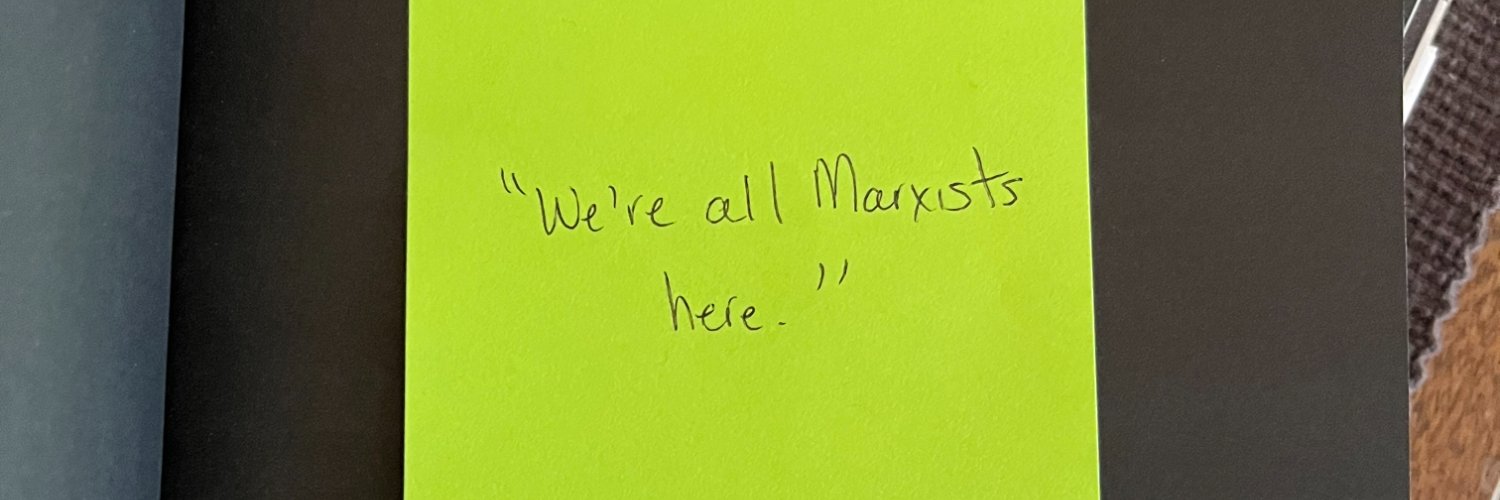 "We're all Marxists
here."